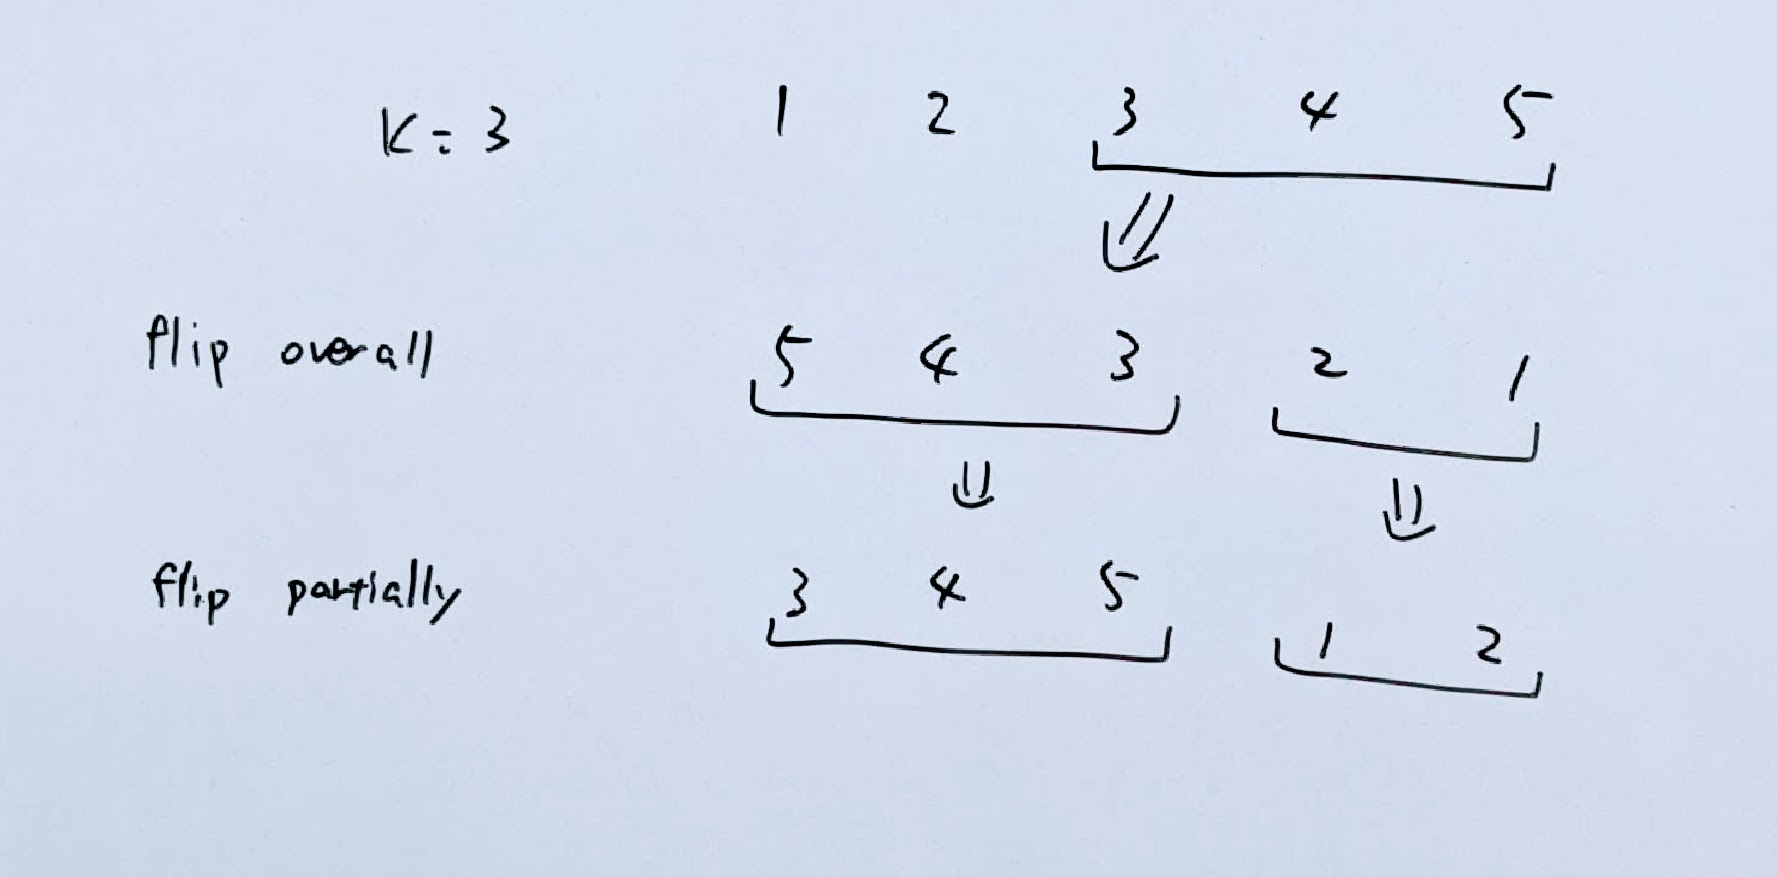 K = 3 1 2 3 4 5
flip overall 5 4 3 2 1
flip partially 3 4 5 1 2